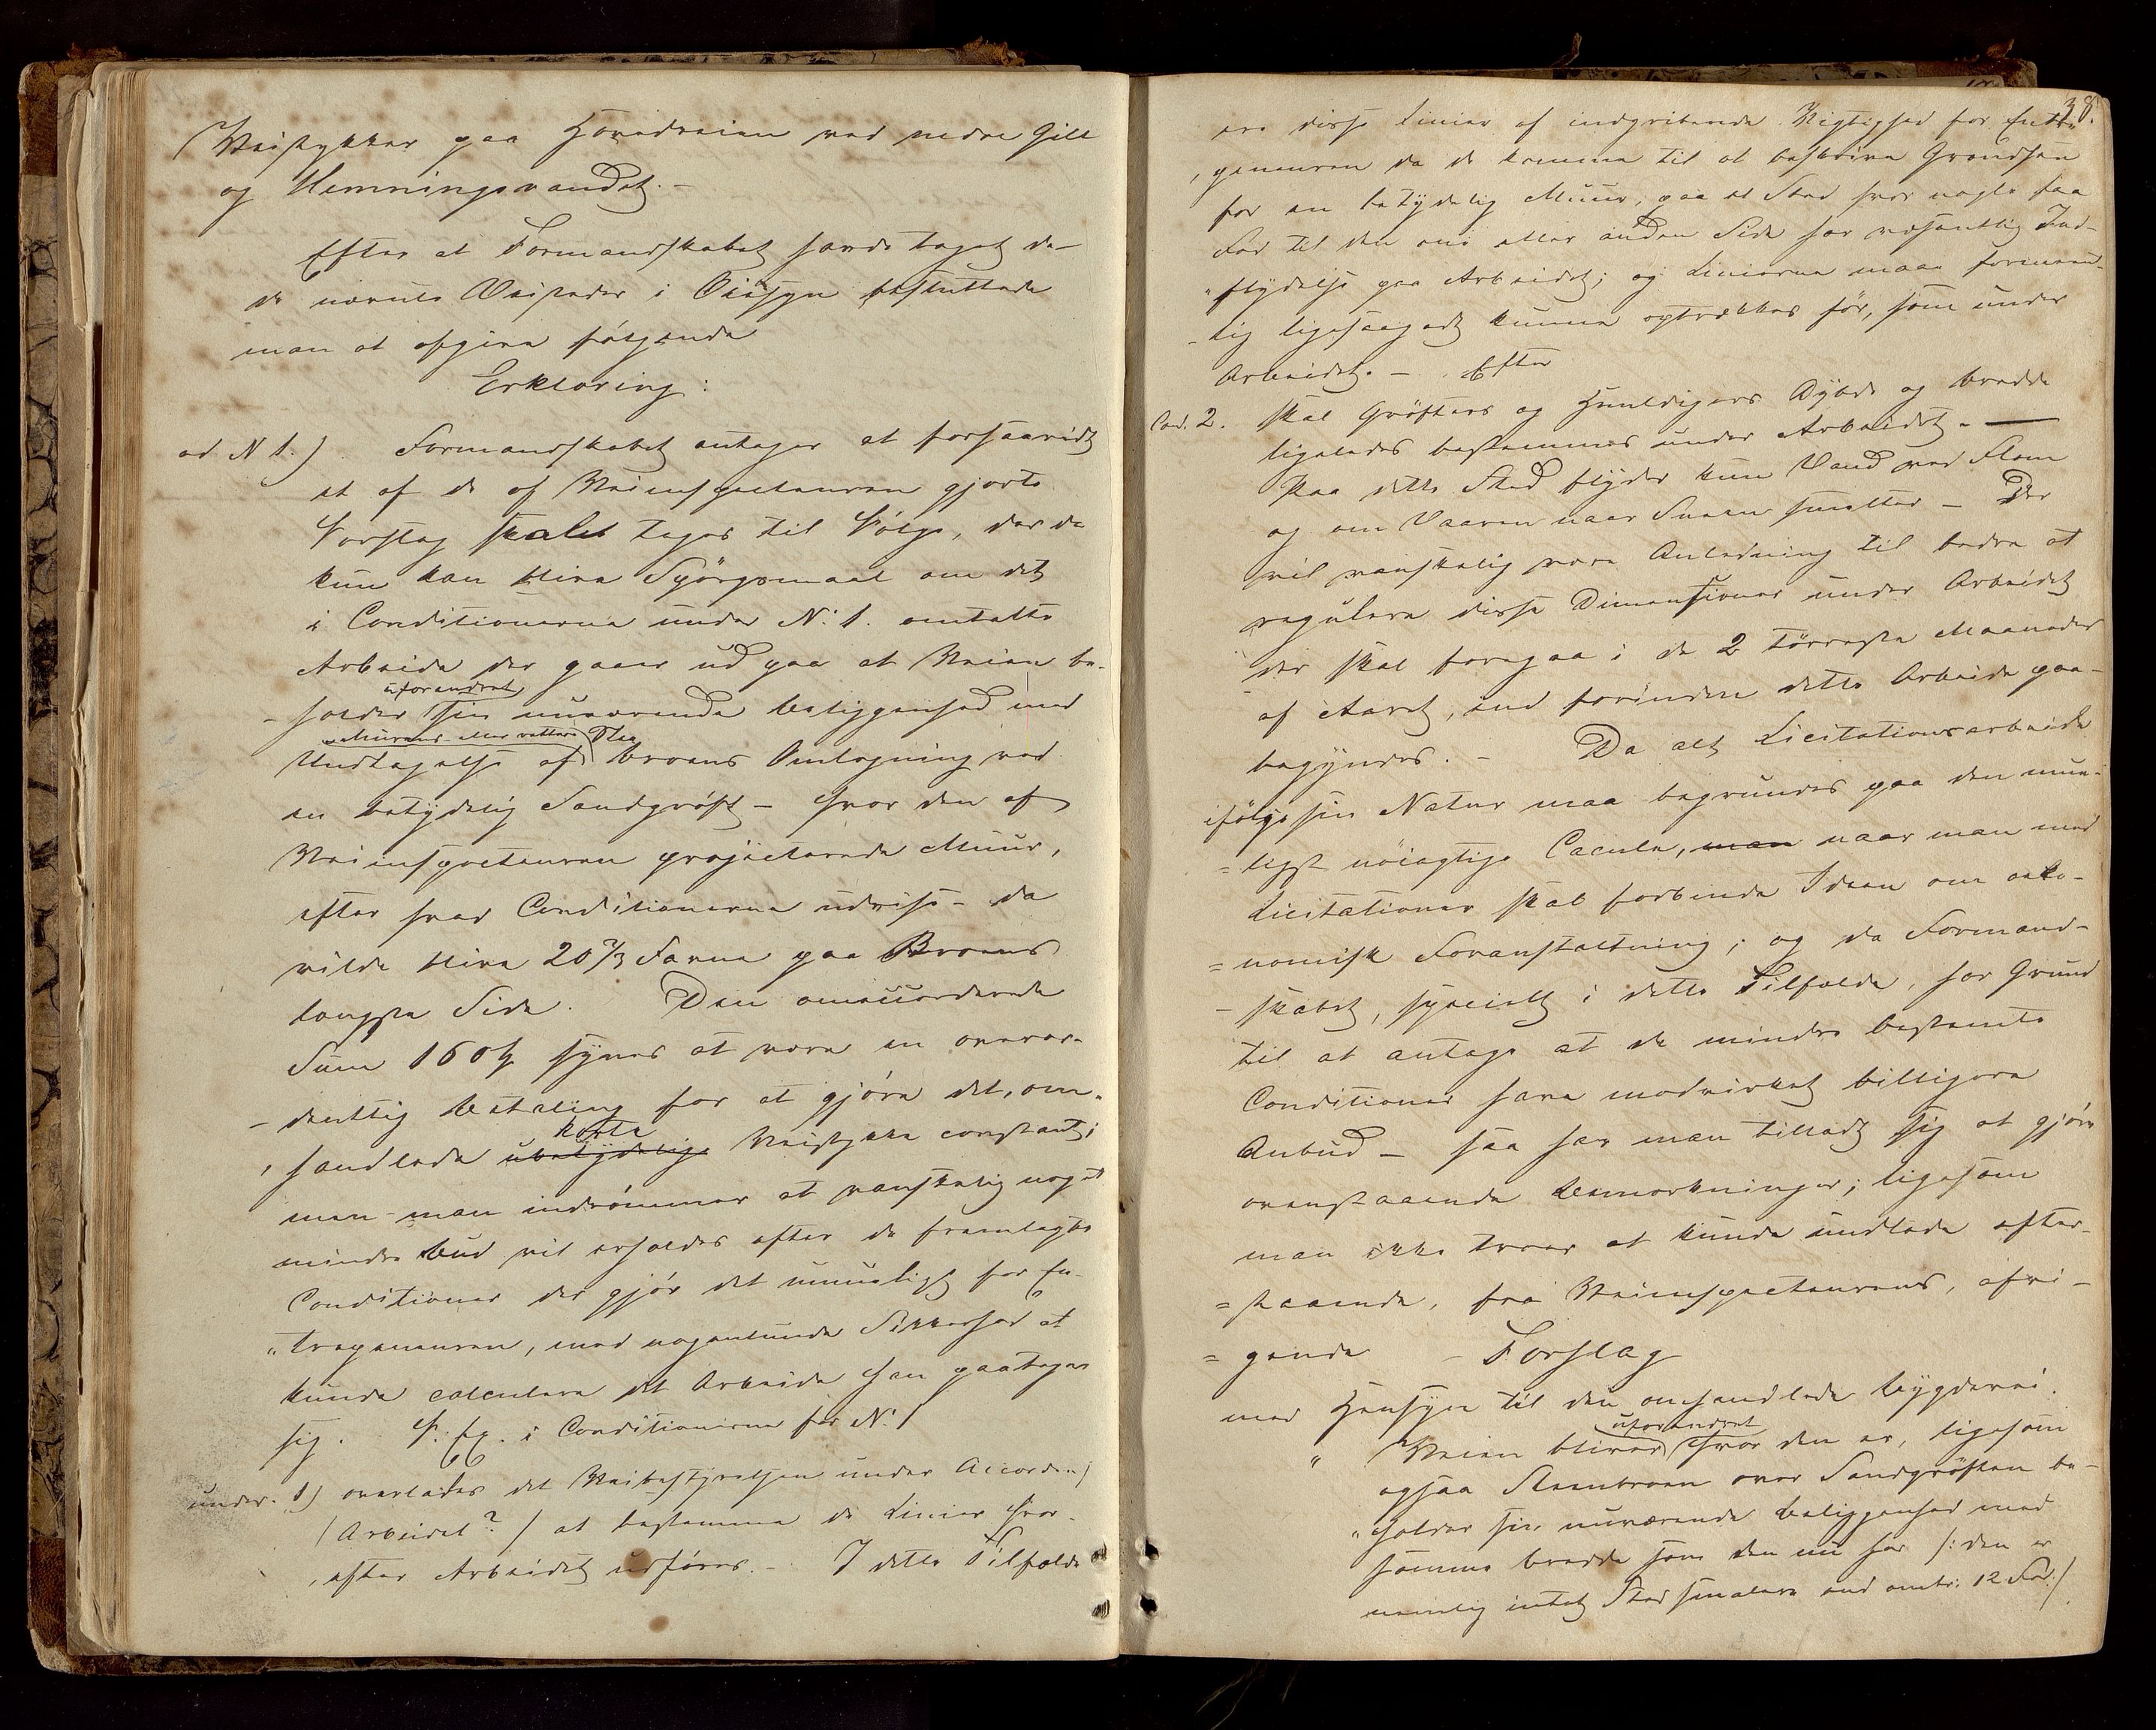 Veistykker paa Hovedveien ved nedre Gill
og Hemningsvandet.-
Efter at Formandskabet havde taget de-
de nævnte Veisteder i Øiesyn besluttede
man at afgive følgende
Erklæring:
ad N 1.) Formandskabet antager at forsaavidt
et af de af Veiinspecteuren gjorte
Forslag skal tages til Følge, der da
kun kan blive Spörgsmaal om det
i Conditionerne under No 1. omtalte
Arbeide der gaaer ud paa at Veien be-
uforandret
-holder sin nuværende Beliggenhed med
Murens eller rettere Stem
Undtagelse af Broens Omlægning ved
en betydelig Sandgrøft - hvor den af
Veiinspecteuren projecterede Muur,
efter hvad Conditionerne udvise - da
vilde blive 20 2/3 Favne paa Broens
længste Side. Den omvurderede
Sum 160 synes at være en overor-
-dentlig Betaling for at gjøre det, om-
korte
handlede ubetydelige Veistykke constant;
men man indrømmer at vanskelig noget
mindre Bud vil erholdes efter de fremlagte
Conditioner der gjør det umuligt for En-
treprenøren, med nogenlunde Sikkerhed at
kunde calculere det Arbeide han paatager
sig. F. Ex. i Conditionerne for No 1
under. 1) overlades det Veibestyrelsen under Accorden
(Arbeidet?) at bestemme de Linier hvor-
efter Arbeidet udføres.- I dette Tilfælde
38.
ere disse Linier af indgribende Vigtighed for Entre-
preneuren da de komme til at beskrive Grændsen
for en betydelig Muur, paa et Sted hvor nogle faa
Fod til den ene eller anden Side har væsentlig Ind-
flydelse paa Arbeidet; og Linierne maae formeent-
lig ligesaagodt kunne optrækkes før, som under
Arbeidet. - Efter
Cond. 2. skal Grøfters og Huuldigers Dybde og bredde
ligeledes bestemmes under Arbeidet. -
Paa dette Sted flyder kun Vand ved Flom
og om Vaaren naar Sneen smelter - Der
vil vanskelig være Anledning til bedre at
regulere disse Dimensioner under Arbeidet
der skal foregaa i de 2 tørreste Maaneder
af Aaret, end forinden dette Arbeide paa-
begyndes. - Da alt Licitationsarbeide
ifølge sin Natur maa begrundes paa den mue-
ligst nöiagtige Calcule, man naar man med
Licitationer skal forbinde Ideen om oeko-
nomisk Foranstaltning; og da Formand-
skabet, specielt i dette Tilfælde, har Grund
til at antage at de mindre bestemte
Conditioner have modvirket billigere
Anbud - saa har man tilladt sig at gjøre
ovenstaaende Bemærkninger; ligesom
man ikke troer at kunde undlade efter-
staaende, fra Veiinspecteurens, afvi-
gende - Forslag
med Hensyn til den omhandlede bygdevei.
uforandret
" Veien bliver hvor den er, ligesom
ogsaa Stembroen over Sandgrøften be-
holder sin nuværende Beliggenhed med
samme bredde som den nu har /: den er
nemlig intet Sted smalere end omtr. 12 Fod:/